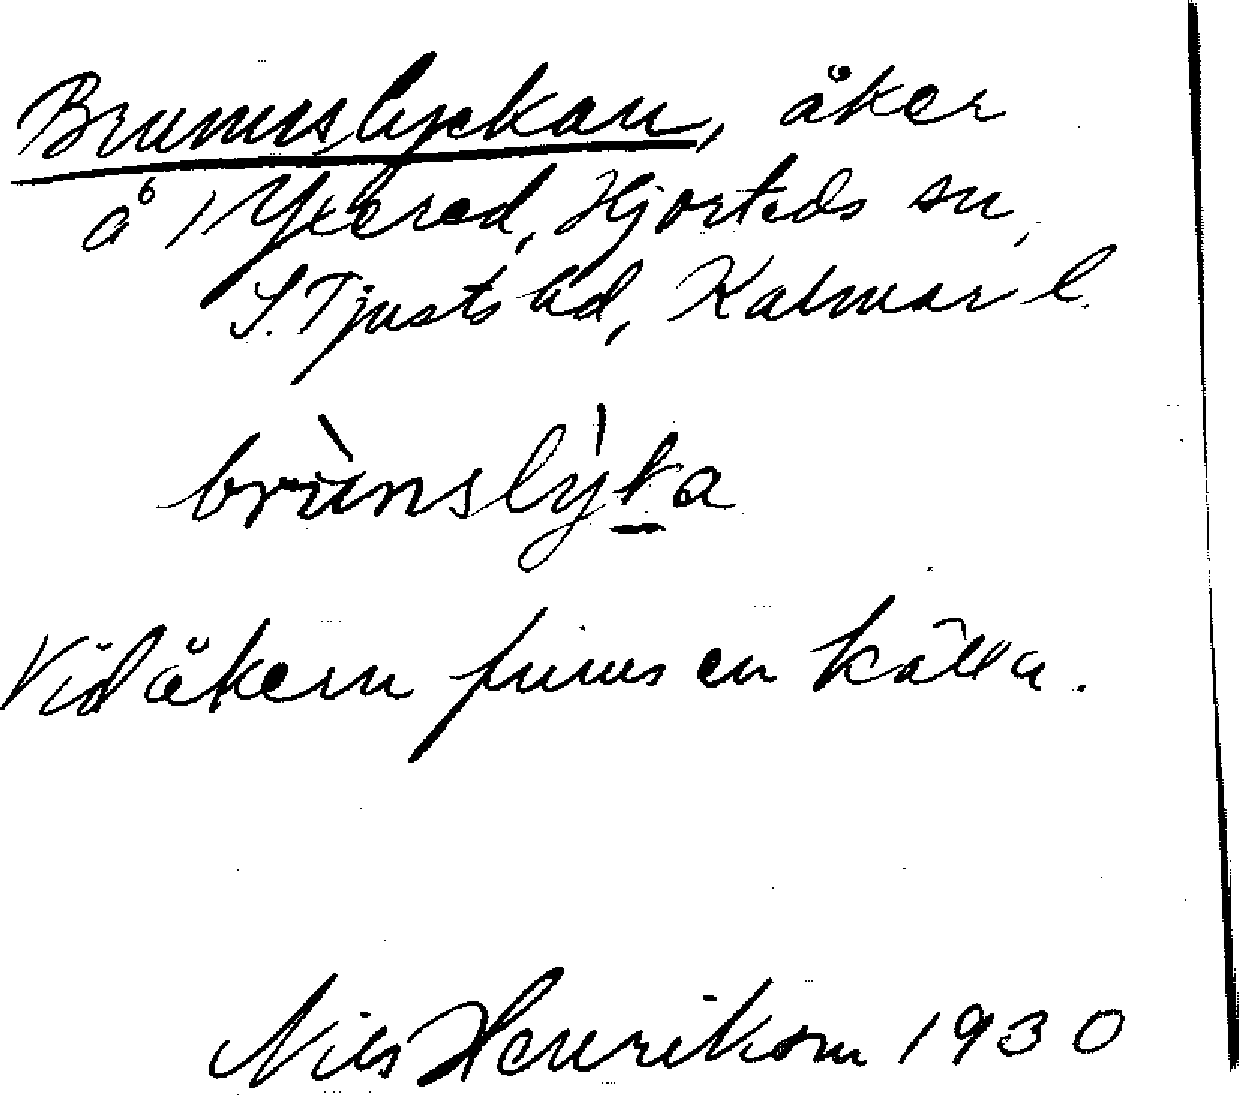 Brunnslyckan, åker
å 1 Yxered, Hjorteds sn,
S. Tjusts hd, Kalmar l.
brùnslýka
Vid åkern finns en källa.
Nils Henrikson 1930